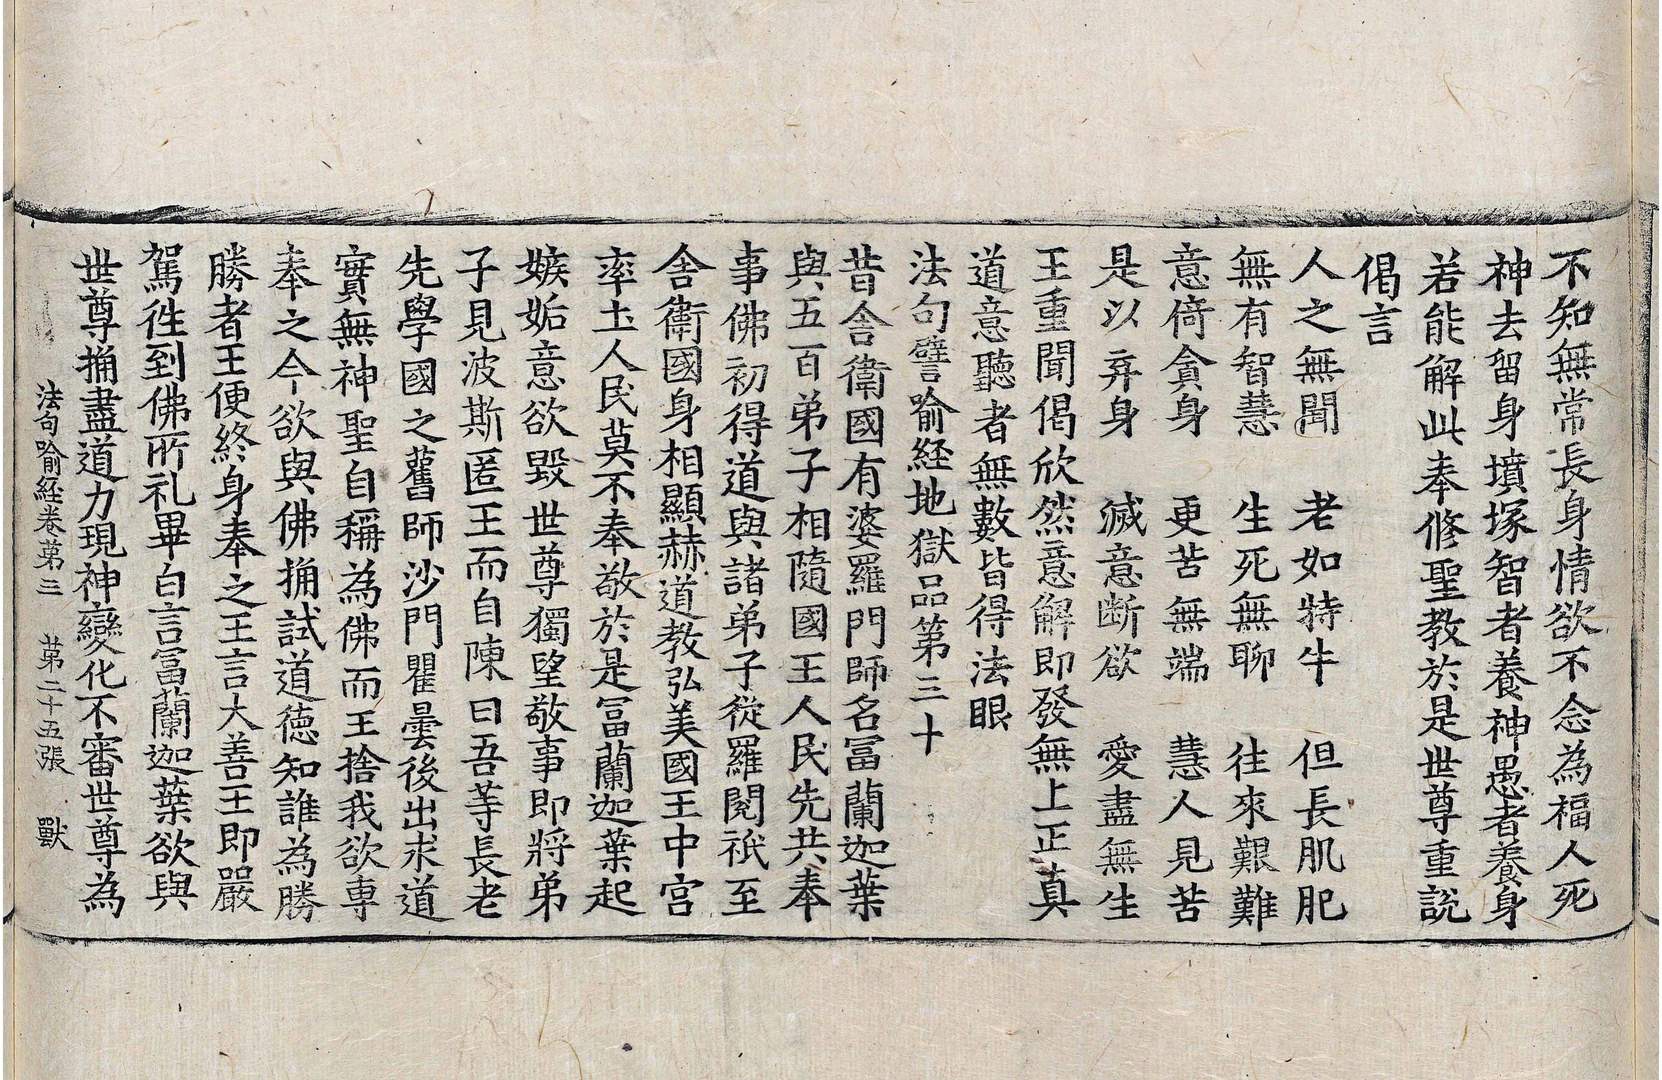 不知無常長身情欲不念為福人死
神去留身墳塚智者養神愚者養身
若能解此奉修聖教於是世尊重說
偈言
人之無聞　老如特牛　但長肌肥
無有智慧　生死無聊　往來艱難
意倚貪身　更苦無端　慧人見苦
是以弃身　滅意断欲　愛盡無生
王重聞偈欣然意解即發無上正真
道意聽者無數皆得法眼
法句譬喻経地獄品第三十
昔舎衛國有婆羅門師名冨蘭迦葉
與五百弟子相隨國王人民先共奉
事佛初得道與諸弟子從羅閱祇至
舎衛國身相顯赫道教弘美國王中宮
率土人民莫不奉敬於是冨蘭迦葉起
嫉妬意欲毀世尊獨望敬事即將弟
子見波斯匿王而自陳曰吾等長老
先學國之舊師沙門瞿曇後出求道
實無神聖自稱為佛而王捨我欲專
奉之今欲與佛捔試道徳知誰為勝
勝者王便終身奉之王言大善王即嚴
駕徃到佛所礼畢白言冨蘭迦葉欲與
世尊捔盡道力現神變化不審世尊為
法句喻経卷苐三　苐二十五張　獸